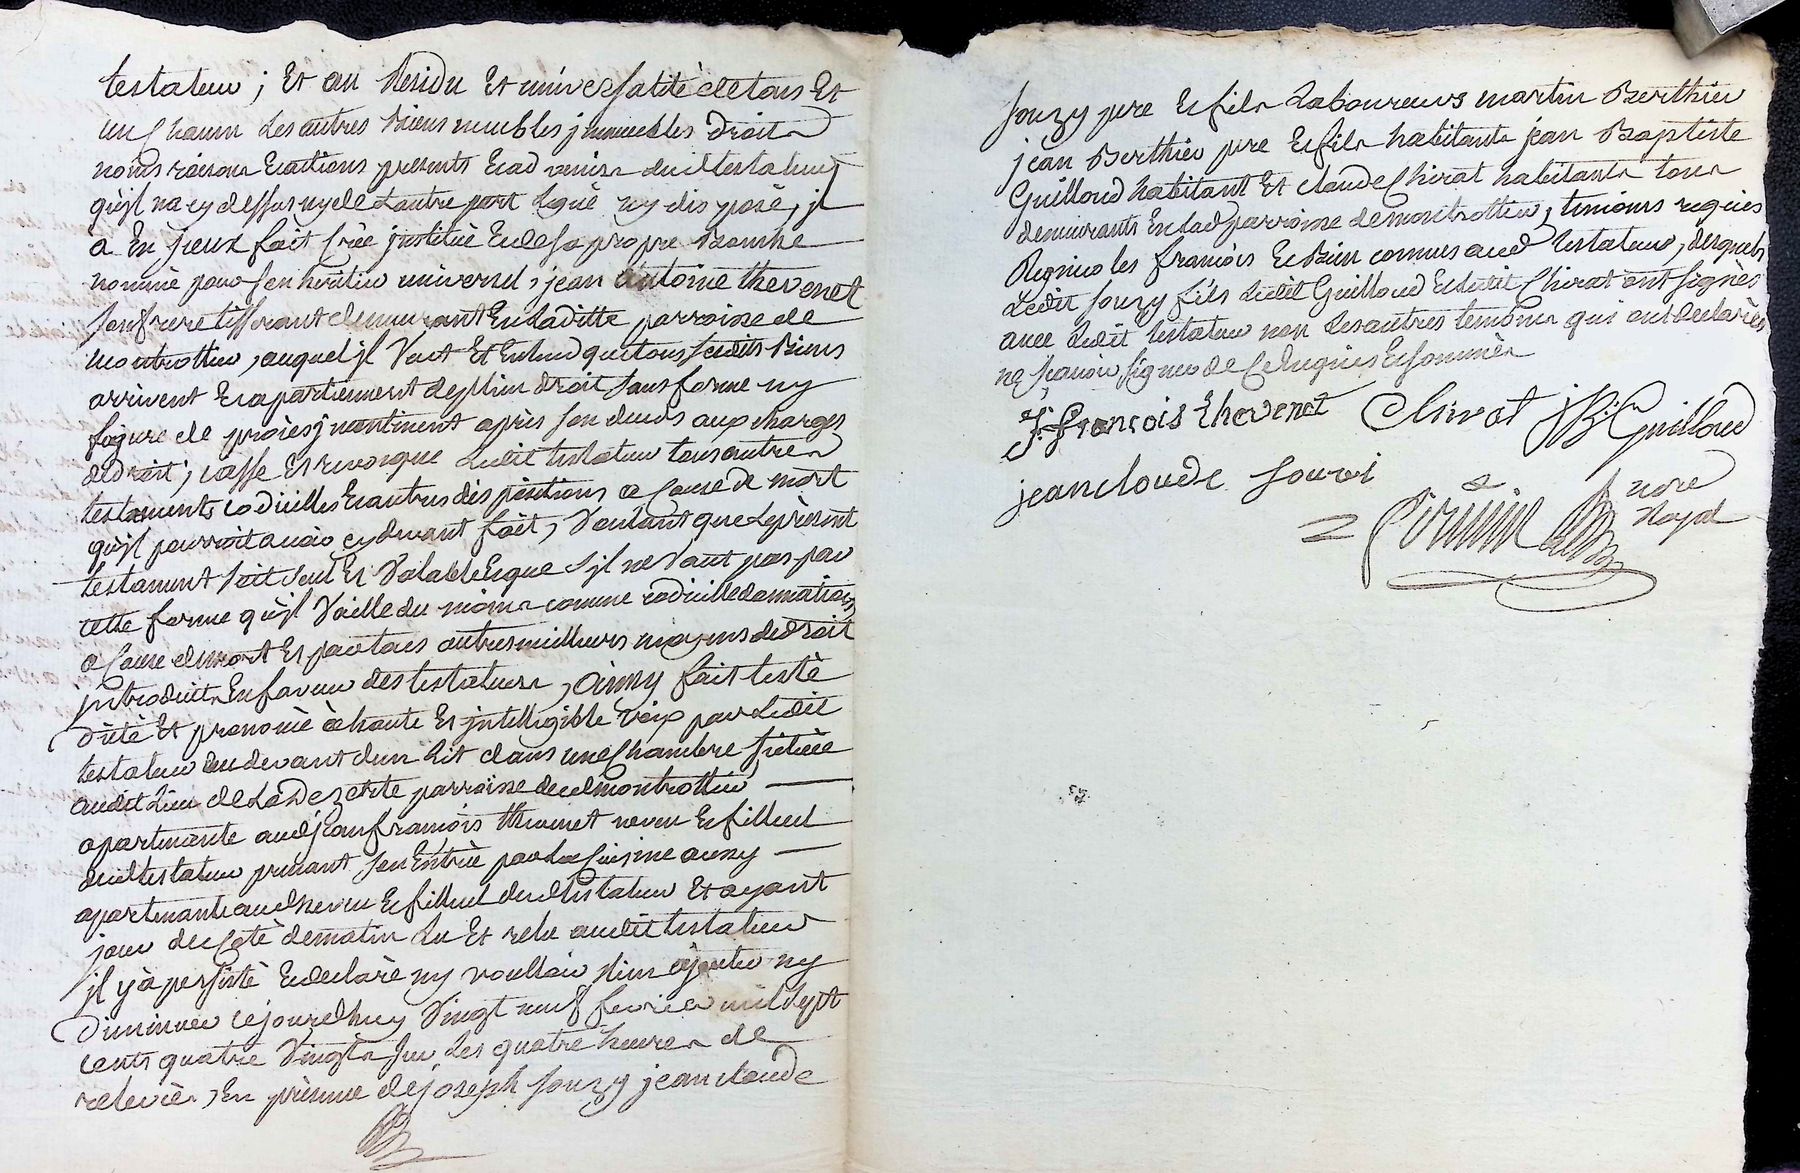 testateur ; Et au Residu Et universalité de tous Et
un Chacun Les autres Biens meubles jmmeubles Droits
noms raisons Et actions presents Et ad venirs dud testateur
qu'jl na cy dessus ny de Lautre part Légué ny disposé, jl
a En jceux fait Créé jnstitué Et de sa propre Bouche
nommé pour son heritier universel, jean antoine thevenet
son frere tisserant demeurant En Laditte parroisse de
montrottier, auquel jl Veut Et Entend que tous sesdits Biens
arrivent Et apartiennent de plein droit sans forme ny
figure de procès jncontinent après son decès aux charges
de droit ; casse Et revoque Ledit testateur tous autres
testaments codicilles Et autres dispositions a Cause de mort
qu'jl pourroit avoir cy devant fait, Voulant que Le présent
testament soit seul Et Valable Et que s'jl ne Vaut pas par
cette forme qu'jl Vaille du moins comme codicille donnation
a Cause de mort Et par tous autres meilleurs moyens de droit
jntroduits En faveur des testateurs, ainsy fait testé
dicté Et prononcé à haute Et jntelligible Voix par Ledit
testateur au devant d'un Lit dans une Chambre scituée
audit Lieu de La parroisse dud montrottier
apartenante aud jean françois thevenet neveu Et filleul
dud testateur prenant son Entrée par La Cuisine aussy
apartenante aud neveu Et filleul dud testateur Et ayant
jour du Coté de matin Lu Et relu audit testateur
jl y à persisté Et declaré ny voulloir Rien ajouter ny
diminuer cejourdhuy Vingt neuf fevrier mil sept
cents quatre Vingts Sur Les quatre heures de
relevées, En présence de joseph souzy jean claude
souzy pere Et fils Laboureurs martin Berthier
jean Berthier pere Et fils habitants jean Baptiste
Guilloud habitant Et claude Chirat habitants tous
demeurants En lad parroisse de montrottier, temoins requis
Regnicoles françois Et Bien connus aud testateur, desquels
Ledit souzy fils Ledit Guilloud Et Ledit Chirat ont signés
avec Ledit testateur non Les autres temoins qui ont declarés
ne sçavoir signer de Ce Requis Et sommés
J. françois thevenet Chirat JB. Guilloud
jean cloude souzi
nore
Royal